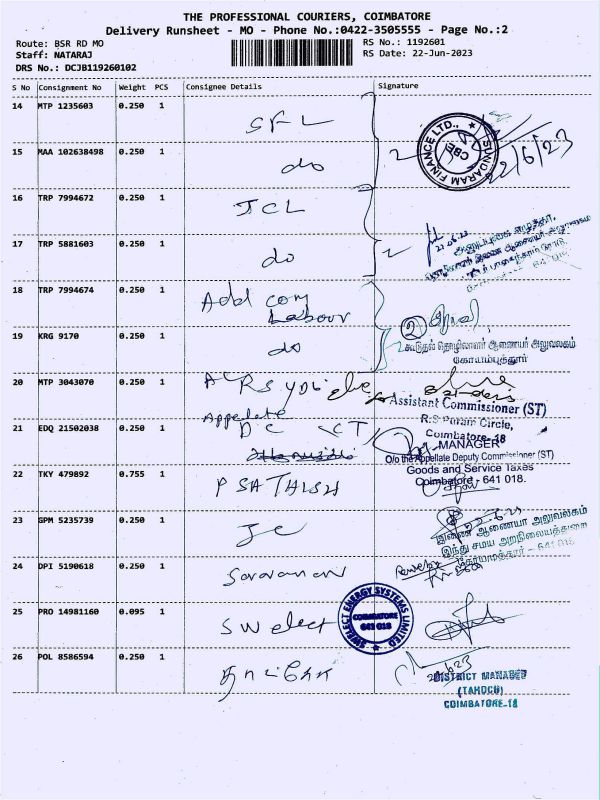 THE PROFESSIONAL COURIERS, COIMBATORE
Delivery Runsheet - MO - Phone No.:0422-3505555 - Page No.:2
Route: BSR RD MO
Staff: NATARAJ
DRS No.: DCJB119260102
RS No.: 1192601
RS Date: 22-Jun-2023
S No Consignment No Weight PCS Consignee Details Signature
14 MTP 1235603 0.250 1 SFL
SUNDARAM FINANCE LTD., CBE
22/6/23
15 MAA 102638498 0.250 1 do 2
16 TRP 7994672 0.250 1 JCL
17 TRP 5881603 0.250 1 do 2
18 TRP 7994674 0.250 1 Addl com
Labour
2
19 KRG 9170 0.250 1 do
கூடுதல் தொழிலாளர் ஆணையர் அலுவலகம்
கோயம்புத்தூர்
20 MTP 3043070 0.250 1 AC RS
Assistant Commissioner (ST)
R.S Puram Circle,
Coimbatore-18
21 EDQ 21502038 0.250 1 Appelate
DC CT
MANAGER
O/o the Appellate Deputy Commissioner (ST)
Goods and Service Taxes
Coimbatore - 641 018.
22 TKY 479892 0.755 1 P SATHISH
23 GPM 5235739 0.250 1 JC
இணை ஆணையர் அலுவலகம்
இந்து சமய அறநிலையத்துறை
24 DPI 5190618 0.250 1 Saravanan
25 PRO 14981160 0.095 1 SW elect
SWELECT ENERGY SYSTEMS LIMITED
COIMBATORE
641 018
26 POL 8586594 0.250 1
DISTRICT MANAGER
(TAHDCO)
COIMBATORE-18